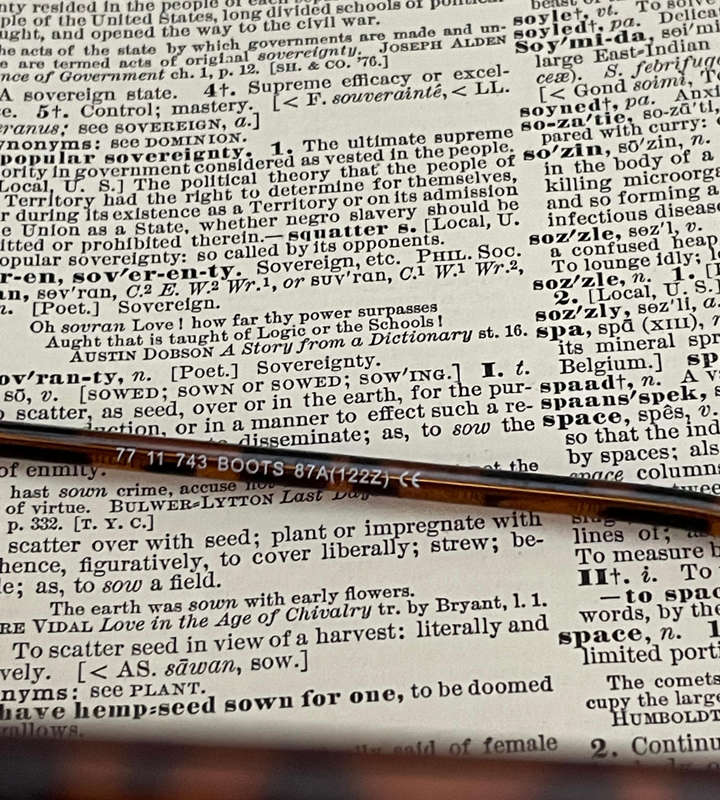 nty resided in the people of each
ple of the United States, long divided schools of political
ught, and opened the way to the civil war.
he acts of the state by which governments are made and un-
e are termed acts of original sovereignty. JOSEPH ALDEN
nce of Government ch. 1, p. 12. [SH. & CO. '76.]
A sovereign state. 4†. Supreme efficacy or excel-
e. 5†. Control; mastery. [< F. souverainté, < LL.
eranus; see SOVEREIGN, a.]
ynonyms: see DOMINION.
popular sovereignty. 1. The ultimate supreme
ority in government considered as vested in the people.
Local, U. S.] The political theory that the people of
Territory had the right to determine for themselves,
r during its existence as a Territory or on its admission
e Union as a State, whether negro slavery should be
itted or prohibited therein.—squatter s. [Local, U.
opular sovereignty: so called by its opponents.
r-en, sov'er-en-ty. Sovereign, etc. PHIL. SOC.
an, sov'ran, C.² E. W.² Wr.¹, or suv'ran, C.¹ W.¹ Wr.²,
n. [Poet.] Sovereign.
Oh sovran Love! how far thy power surpasses
Aught that is taught of Logic or the Schools!
AUSTIN DOBSON A Story from a Dictionary st. 16.
ov'ran-ty, n. [Poet.] Sovereignty.
sō, v. [SOWED; SOWN or SOWED; SOW'ING.] I. t.
o scatter, as seed, over or in the earth, for the pur-
uction, or in a manner to effect such a re-
disseminate; as, to sow the
77 11 743 BOOTS 87A(122Z) CE
of enmity. at the
hast sown crime, accuse not
of virtue. BULWER-LYTTON Last Day
p. 332. [T. Y. C.]
scatter over with seed; plant or impregnate with
hence, figuratively, to cover liberally; strew; be-
le; as, to sow a field.
The earth was sown with early flowers.
RE VIDAL Love in the Age of Chivalry tr. by Bryant, l. 1.
To scatter seed in view of a harvest: literally and
vely. [< AS. sāwan, sow.]
nyms: see PLANT.
have hemp-seed sown for one, to be doomed
allows.
said of female
beast of
soylet, vt. To solve
soyled†, pa. Delica
Soy'mi-da, sei'mi
large East-Indian
ceæ). S. febrifug
[< Gond soimi, T
soyned†, pa. Anxi
so-za'tie, so-zā'ti,
pared with curry:
so'zin, sō'zin, n.
in the body of a
killing microorga
and so forming a
infectious disease
soz'zle, sez'l, v.
a confused heap
To lounge idly; l
soz'zle, n. 1. [
2. [Local, U. S.]
soz'zly, sez'li, a.
spa, spā (XIII), n
its mineral spr
Belgium.] sp
spaadt, n. A v
spaans'spek, s
space, spēs, v.
so that the ind
by spaces; als
space column
twee
lines of;
To measure b
II†. i. To
—to spac
words, by the
space, n. 1
limited porti
The comets
cupy the large
HUMBOLDT
2. Continu